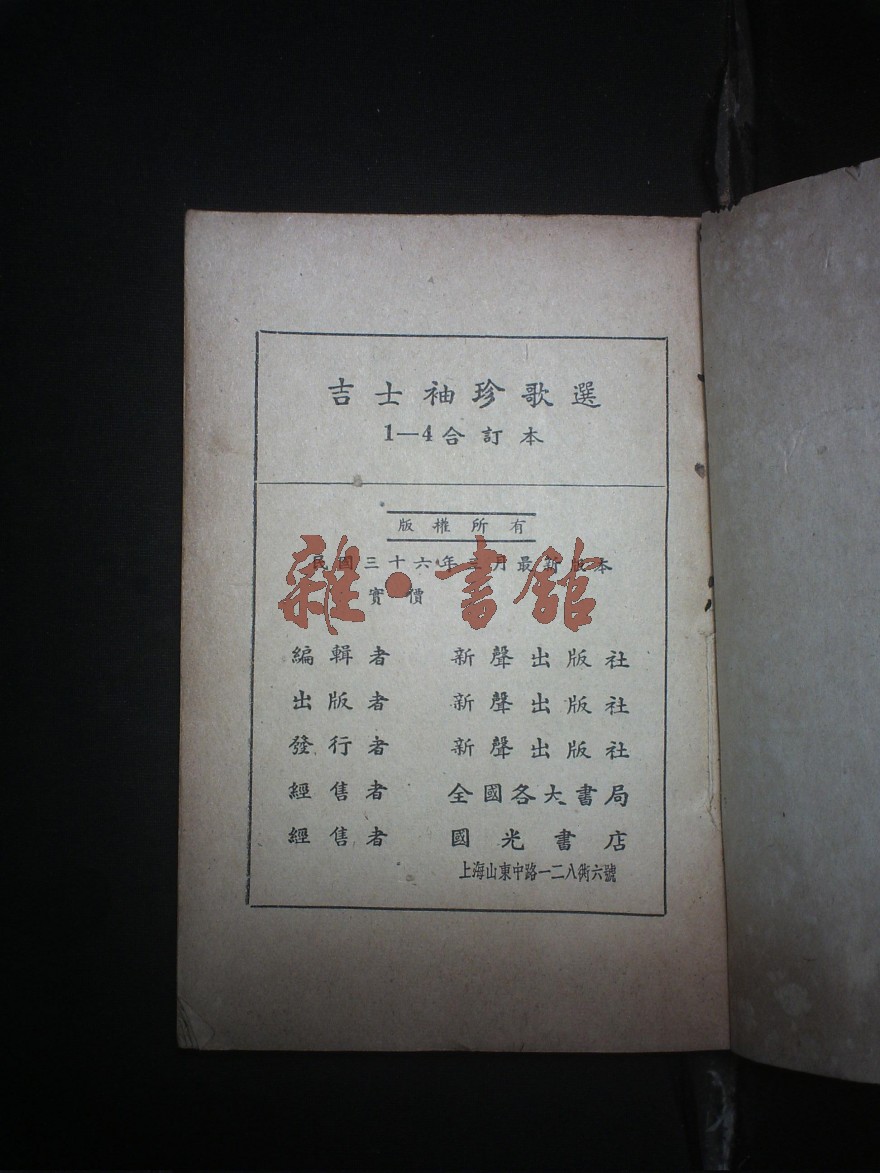 吉士袖珍歌選
1—4合訂本
版權所有
民國三十六年三月最新版本
實價
雜•書館
編輯者 新聲出版社
出版者 新聲出版社
發行者 新聲出版社
經售者 全國各大書局
經售者 國光書店
上海山東中路一二八衖六號